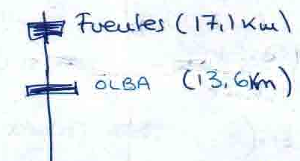 Fuentes (17,1 Km)
OLBA (13,6Km)